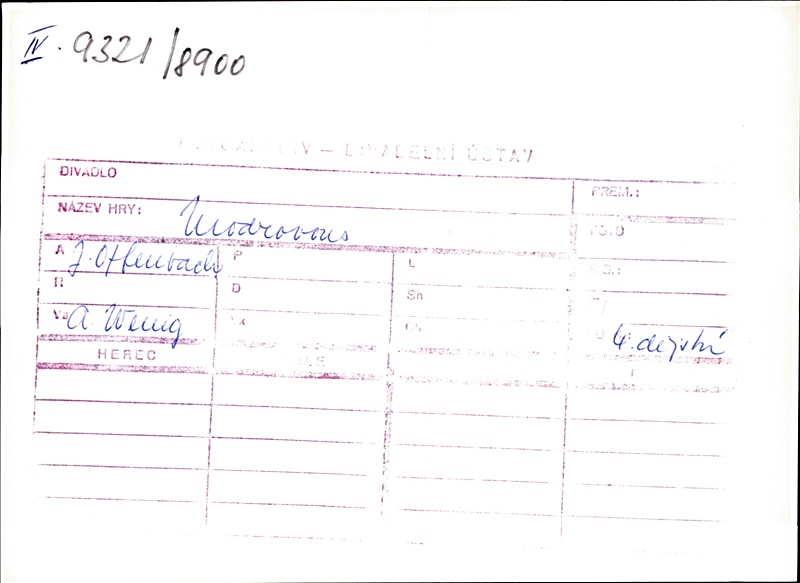 IV. 9321/8900
FOTOARCHIV — DIVADELNÍ ÚSTAV
DIVADLO PREM.:
NÁZEV HRY: Modrovous FOTO
A J. Offenbach P L
R D Sn
Vs A. Wenig 4. dějství
HEREC